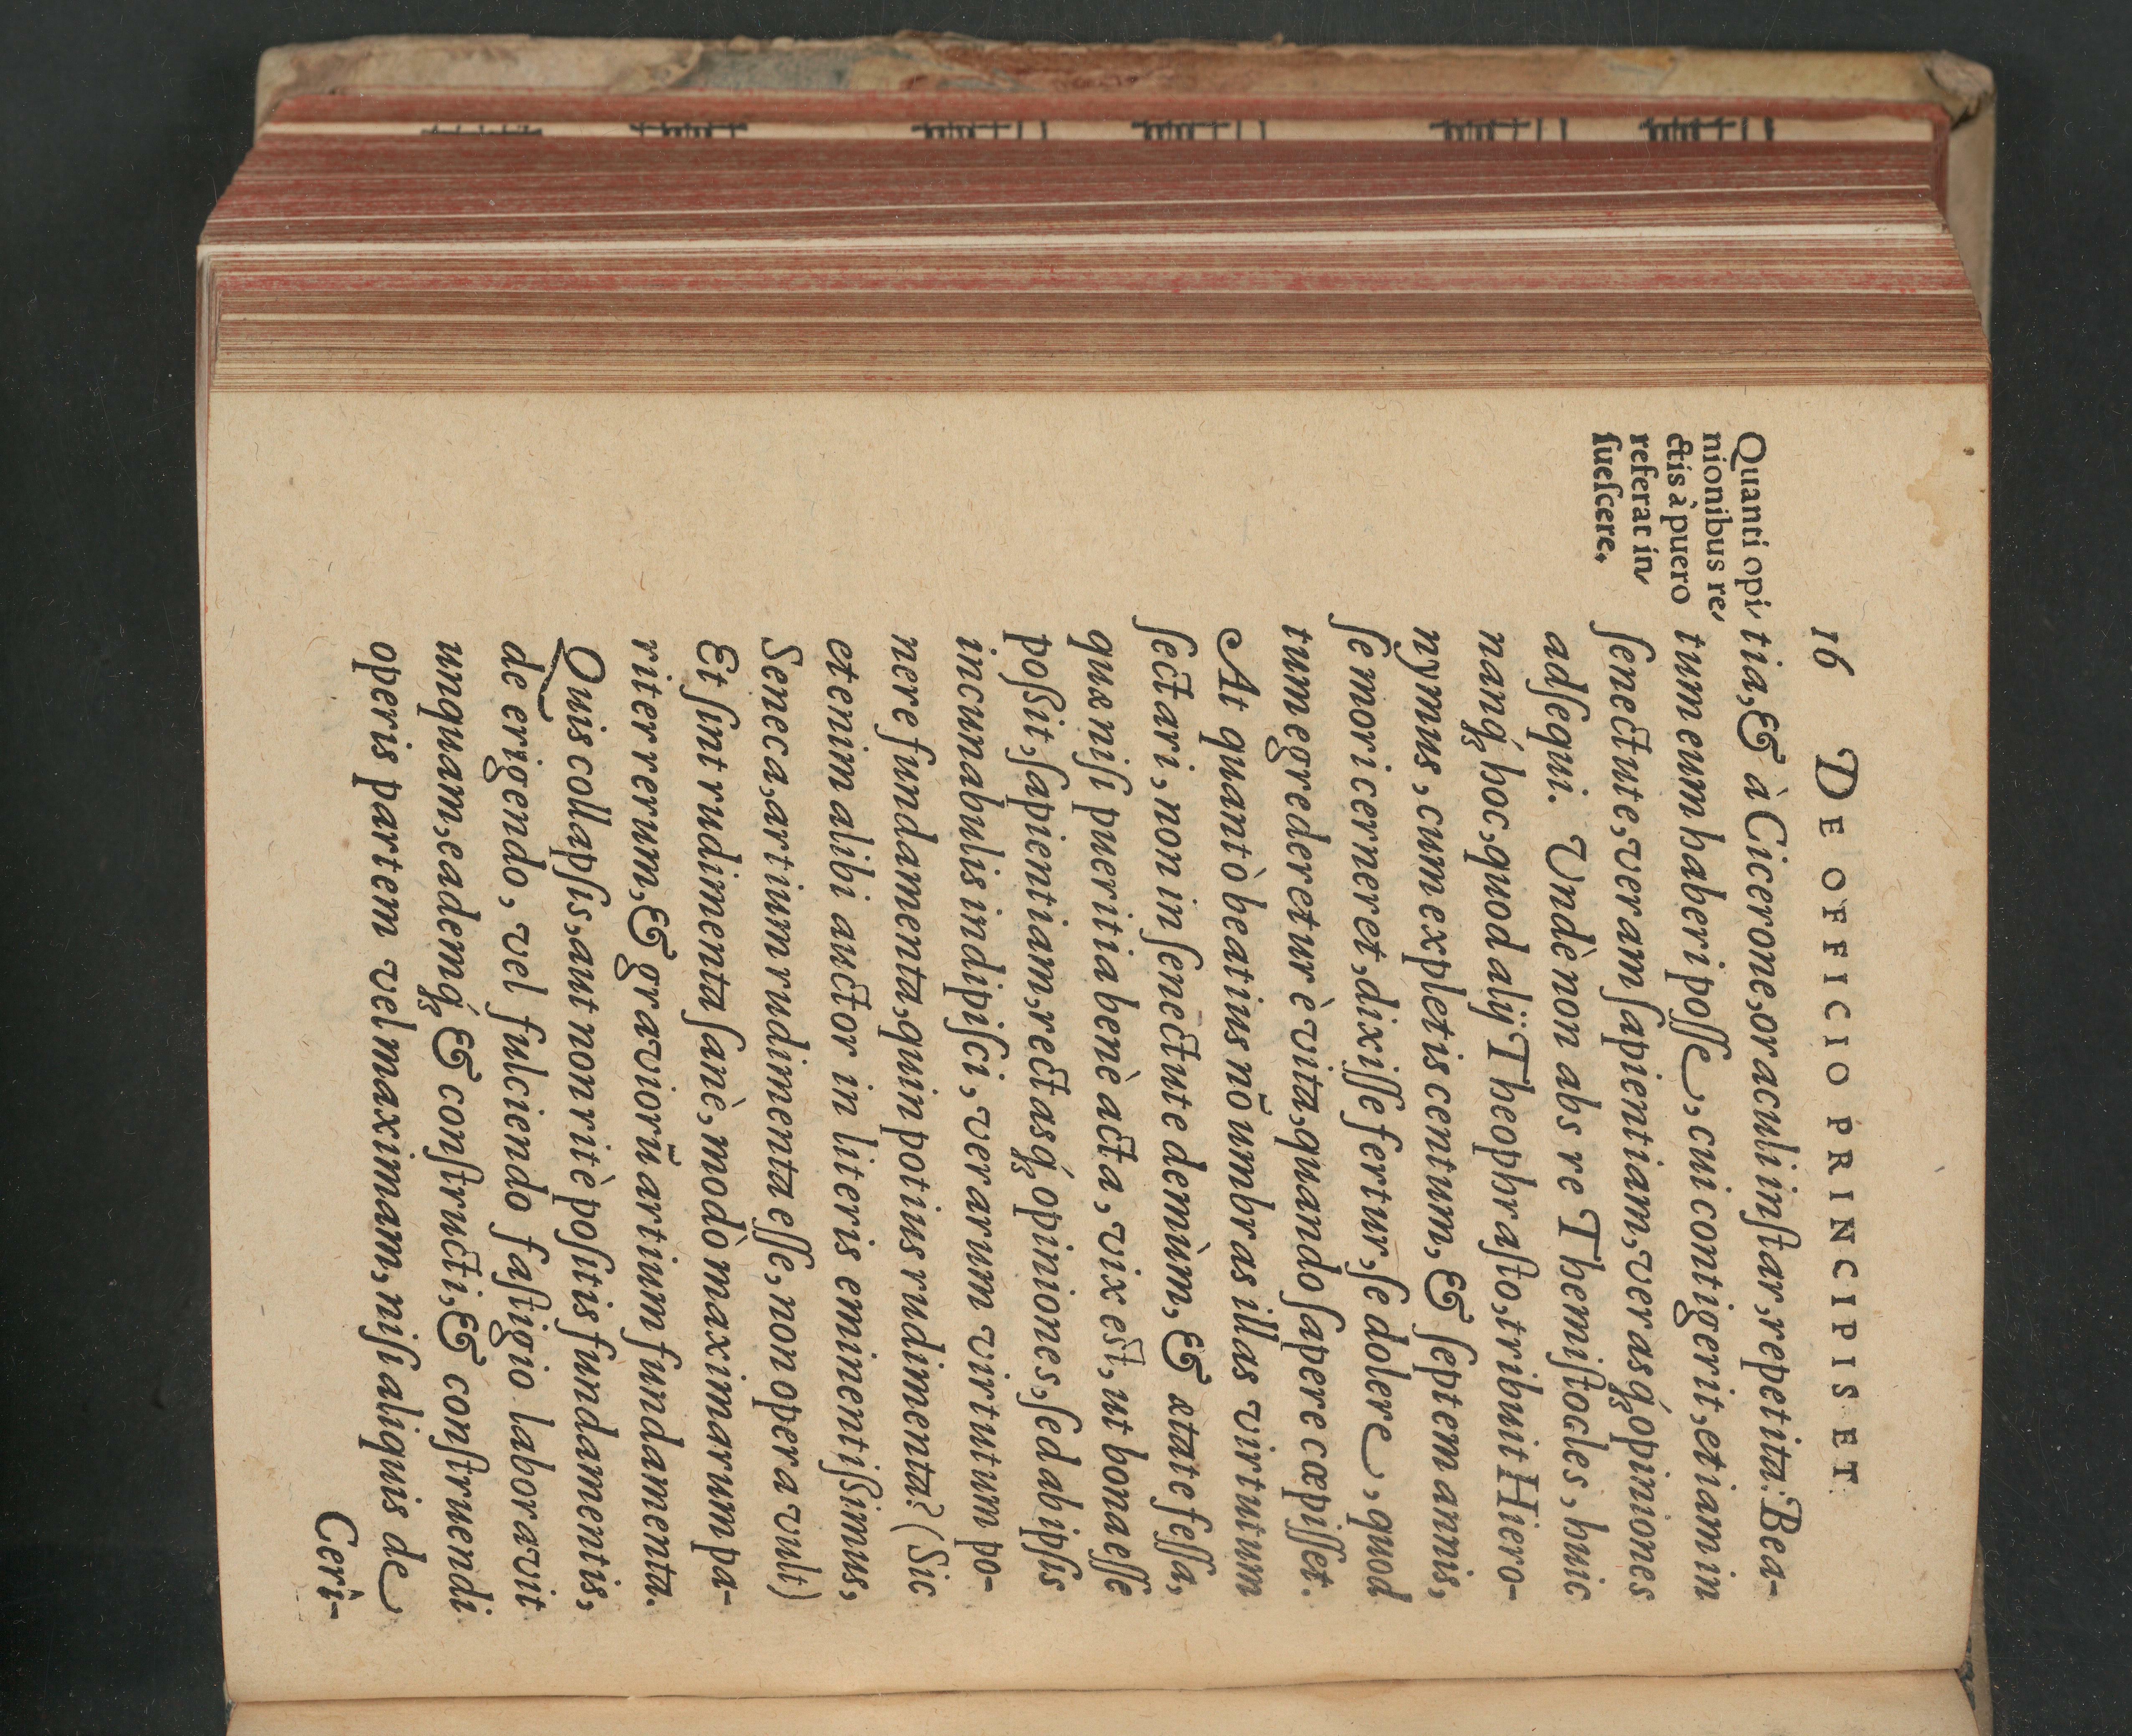 16 DE OFFICIO PRINCIPIS ET
Quanti opi-
nionibus re-
ctis à puero
referat in-
ſueſcere.
tia, & à Cicerone, oraculi inſtar, repetita: Bea-
tum eum haberi poſſe, cui contigerit, etiam in
ſenectute, veram ſapientiam, veraśq; opiniones
adſequi. Vndè non abs re Themiſtocles, huic
nanq́; hoc, quod alij Theophraſto, tribuit Hiero-
nymus, cum expletis centum, & ſeptem annis,
ſe mori cerneret, dixiſſe fertur, ſe dolere, quod
tum egrederetur è vita, quando ſapere cœpiſſet.
At quantò beatius nō umbras illas virtutum
ſectari, non in ſenectute demùm, & ætate feſſa,
quæ niſi pueritia benè acta, vix eſt, ut bona eſſe
poſsit, ſapientiam, rectasq́; opiniones, ſed ab ipſis
incunabulis indipiſci, verarum virtutum po-
nere fundamenta, quin potius rudimenta? (Sic
etenim alibi auctor in literis eminentiſsimus,
Seneca, artium rudimenta eſſe, non opera vult)
Et ſint rudimenta ſanè, modò maximarum pa-
riter rerum, & graviorū artium fundamenta.
Quis collapſis, aut non ritè poſitis fundamentis,
de erigendo, vel fulciendo faſtigio laboravit
unquam, eademq́; & conſtructi, & conſtruendi
operis partem vel maximam, niſi aliquis de
Ceri-